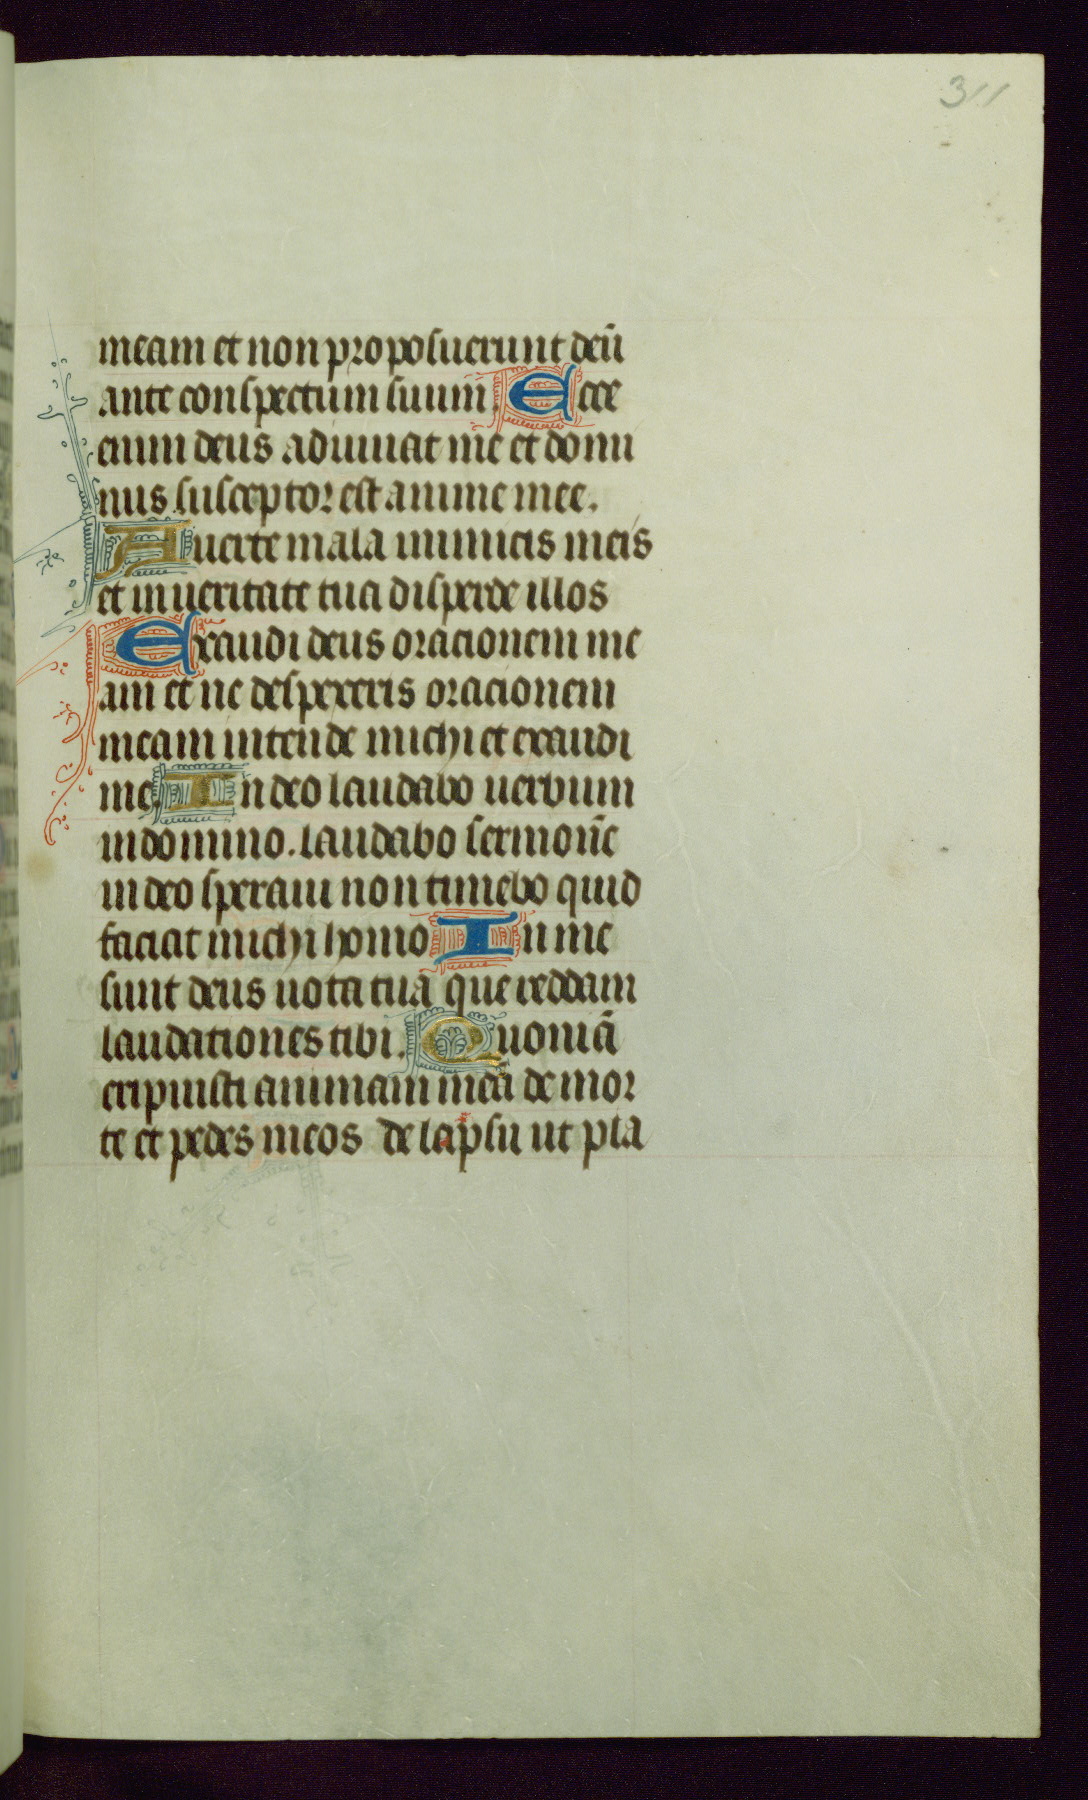 311
meam et non proposuerunt deū
ante conspectum suum. Ecce
enim deus adiuuat me et domi
nus susceptor est anime mee.
Auerte mala inimicis meis
et in ueritate tua disperde illos
Exaudi deus oracionem me
am et ne despexeris oracionem
meam intende michi et exaudi
me. In deo laudabo uerbum
in domino. laudabo sermonē
in deo speraui non timebo quid
faciat michi homo In me
sunt deus uota tua que reddam
laudationes tibi. Quoniā
eripuisti animam meā de mor
te et pedes meos de lapsu ut pla